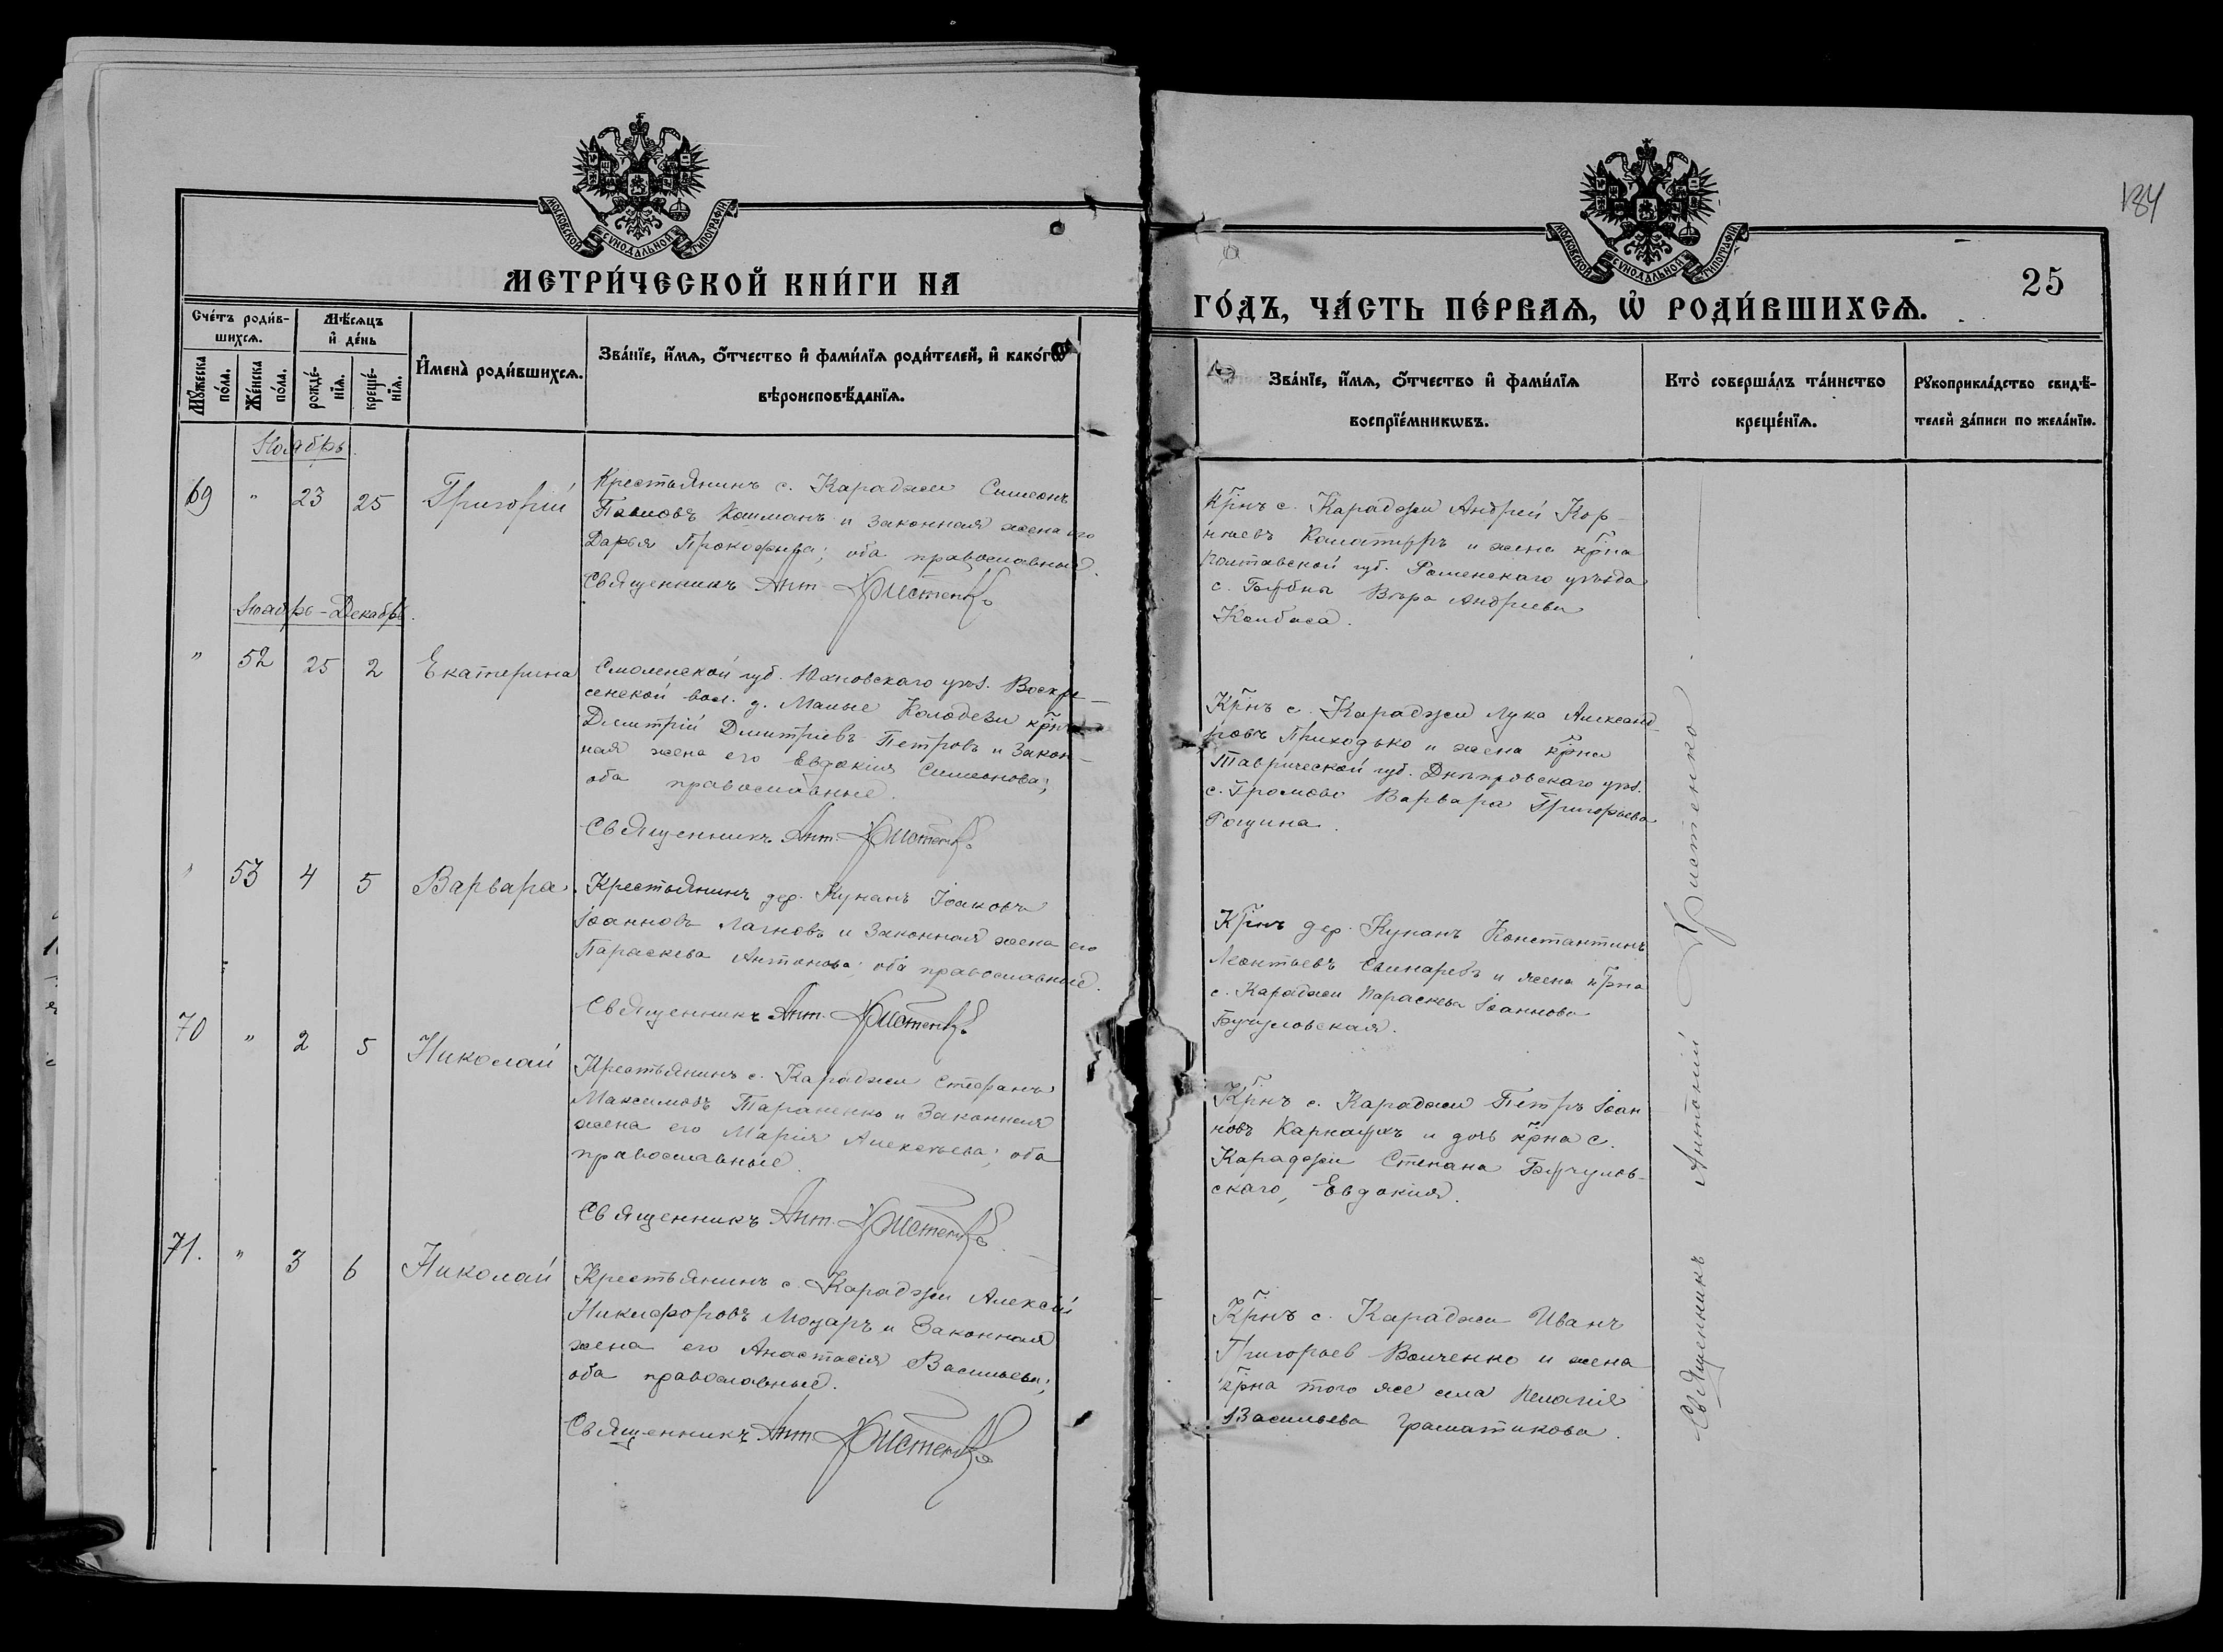 МОСКОВСКОЙ СѴНОДАЛЬНОЙ ТИПОГРАФІИ
МЕТРИ́ЧЕСКОЙ КНИ́ГИ НА
Сче́тъ роди́в-
шихсѧ.
Мѣ́сѧцъ
и҆ де́нь
Мꙋ́жеска
по́ла.
Же́нска
по́ла.
рожде́-
нїѧ.
креще́-
нїѧ.
И҆мена̀ роди́вшихсѧ.
Зва́нїе, и҆́мѧ, ѻ҆́тчество и҆ фами́лїѧ роди́телей, и҆ како́гѡ
вѣроисповѣ́данїѧ.
Ноябрь.
69 " 23 25 Григорій
Крестьянинъ с. Караджи Симеонъ
Павловъ Кацманъ и законная жена его
Дарья Прокофьева; оба православные.
Священникъ Ант. Христенко
Ноябрь-Декабрь.
" 52 25 2 Екатерина
Смоленской губ. Юхновскаго уѣз. Воскре-
сенской вол. д. Малые Колодези кр̃нъ
Димитрій Димитріевъ Петровъ и закон-
ная жена его Евдокія Симеонова;
оба православные.
Священникъ Ант. Христенко
" 53 4 5 Варвара.
Крестьянинъ дер. Кунанъ Іоаковъ
Іоанновъ Лагновъ и законная жена его
Параскева Антонова; оба православные.
Священникъ Ант. Христенко
70 " 2 5 Николай
Крестьянинъ с. Караджи Стефанъ
Максимовъ Тараненко и законная
жена его Марія Алексѣева; оба
православные.
Священникъ Ант. Христенко
71. " 3 6 Николай
Крестьянинъ с. Караджи Алексій
Никифоровъ Моцарь и законная
жена его Анастасія Васильева;
оба православные.
Священникъ Ант. Христенко
184
МОСКОВСКОЙ СѴНОДАЛЬНОЙ ТИПОГРАФІИ
25
ГО́ДЪ, ЧА́СТЬ ПЕ́РВАѦ, Ѡ҆ РОДИ́ВШИХСѦ.
Зва́нїе, и҆́мѧ, ѻ҆́тчество и҆ фами́лїѧ
воспрїе́мникѡвъ.
Кто̀ соверша́лъ та́инство
креще́нїѧ.
Рꙋкоприкла́дство свидѣ́-
телей за́писи по жела́нїю.
Кр̃нъ с. Караджи Андрей Кор-
нѣевъ и жена кр̃на
Полтавской губ. Роменскаго уѣзда
с. Вѣра Андреева
Колбаса.
Кр̃нъ с. Караджи Лука Александ-
ровъ Приходько и жена кр̃на
Таврической губ. Днѣпровскаго уѣз.
с. Громовс Варвара Григорьева
Рощина.
Кр̃нъ дер. Кунанъ Константинъ
Леонтьевъ Свинаревъ и жена кр̃на
с. Караджи Параскева Іоаннова
Бучуловская.
Кр̃нъ с. Караджи Петръ Іоан-
новъ Карнаухъ и дочь кр̃на с.
Караджи Степана Бучулов-
скаго, Евдокия.
Кр̃нъ с. Караджи Иванъ
Григорьев Волченко и жена
кр̃на того же села Пелагія
Васильева Граматикова.
Священникъ Антоній Христенко.